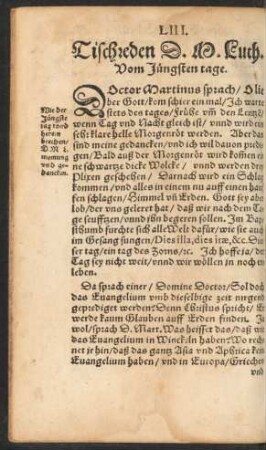 LIII.
Tischreden D. M. Luth.
Vom Jüngsten tage.
DOctor Martinus sprach/ O lie
ber Gott/ kom schier ein mal/ Ich warte
stets des tages/ Frühe vm̃ den Lentz/
wenn Tag vnd Nacht gleich ist/ vnnd wird ein
sehr klare helle Morgenröt werden. Aber das
sind meine gedancken/ vnd ich wil dauon predi
gen/ Bald aus der Morgenröt wird komen ei
ne schwartze dicke Wolcke/ vnnd werden drey
Plixen geschehen/ Darnach wird ein Schlag
kommen/ vnd alles in einem nu auff einen hauf
fen schlagen/ Himmel vñ Erden. Gott sey aber
lob/ der vns geleret hat/ daß wir nach dem Ta
ge seufftzen/ vnnd ihn begeren sollen. Im Bap
sthumb furchte sich alle Welt dafür/ wie sie auch
im Gesang sungen/ Dies illa, dies iræ, &c. Die
ser tag/ ein tag des Zorns/ ꝛc. Ich hoffe ja/ der
Tag sey nicht weit/ vnnd wir wöllen in noch er
leben.
Wie der
Jüngste
tag werd
herein
brechen/
D. M. L.
meinung
vnd ge-
dancken.
Da sprach einer/ Domine Doctor/ Sol doch
das Euangelium vmb dieselbige zeit nirgend
geprediget werden? Denn Christus spricht/ Er
werde kaum Glauben auff Erden finden. Ja
wol/ sprach D. Mart. Was heisset das/ daß wir
das Euangelium in Winckeln haben? Wo rech
net jr hin/ daß das gantz Asia vnd Aphrica kein
Euangelium haben/ vnd in Europa/ Griechen
vnd